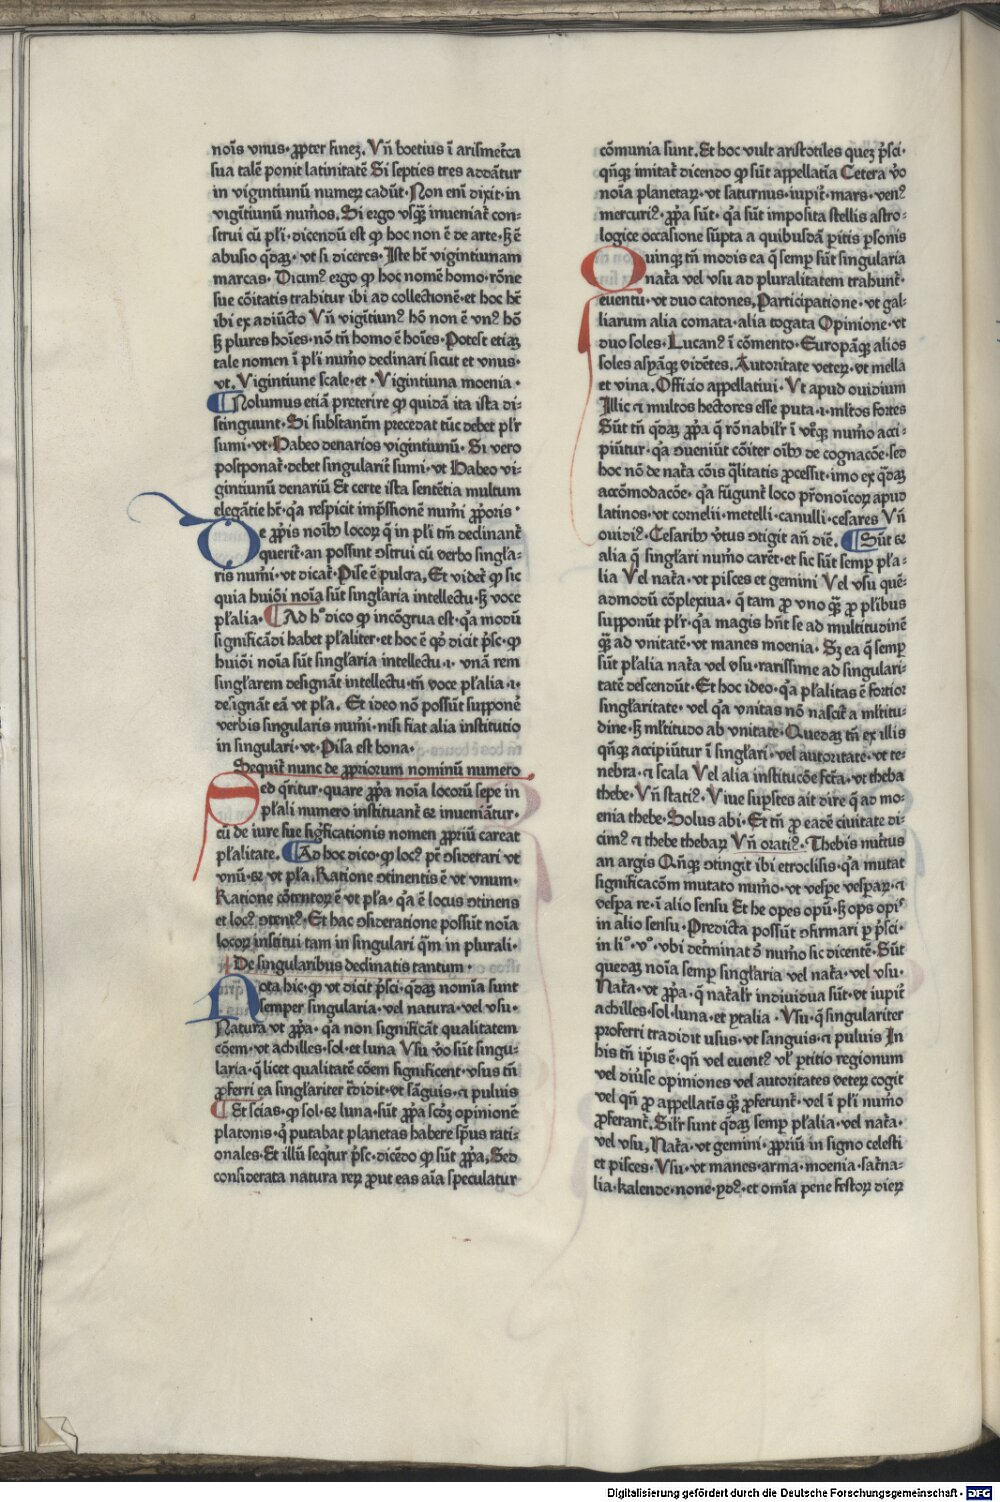 noı̄s vnus· ꝓpter finez. Vn̄ boetius ī arismet̄ca
sua talē ponit latinitatē Si septies tres addātur
in vigintiunū numerꝫ cadūt· Non eni dixit· in
vigītiunū num̄os. Si ergo vsqꝫ̄ inueniat̄ con⸗
strui cū pl̄i· dicendū est ꝙ hoc non ē de arte· ꝫ ē
abusio q̄daꝫ· vt si diceres· Iste hꝫ̄ vigintiunam
marcas· Dicimꝰ ergo ꝙ hoc nomē homo· rōne
sue cōitatis trahitur ibi ad collectionē· et hoc hꝫ̄
ibi ex adiūcto Vn̄ vigītiunꝰ hō non ē vnꝰ hō
ꝫ plures hoīes· nō tn̄ homo ē hoīes· Potest etiaꝫ
tale nomen ī pl̄i num̄o declinari sicut et vnus·
vt. Vigintiune scale· et· Vigintiuna moenia·
Nolumus etiā preterire ꝙ quidā ita ista di⸗
stinguunt· Si substanc̄m precedat tūc debet pl̄r
sumi· vt· Habeo denarios vigintiunū· Si vero
postponat̄· debet singularit̄ sumi· vt Habeo vi⸗
gintiunū denariū Et certe ista sentētia multum
elegātie hꝫ̄· q̄a respicit imp̄ssionē num̄i ꝓportis·
De ꝓprijs noı̄bꝰ locoꝝ q̄ in pl̄i tm̄ declinant̄
querit̄· an possint ꝯstrui cū verbo singl̄a⸗
ris num̄i· vt dicat̄· Pise ē pulcra. Et videt̄ ꝙ sic
quia huiōi noīa sūt singl̄aria intellectu· ꝫ voce
pl̄alia· Ad hͦ dico ꝙ incōgrua est· q̄a modū
significādi habet pl̄aliter· et hoc ē qd̄ dicit p̄sc· ꝙ
huiōi noīa sūt singl̄aria intellectu· i· vnā rem
singl̄arem designāt intellectu· tn̄ voce pl̄alia· i·
designāt eā vt pl̄a. Et ideo nō possūt suppone᷑
verbis singularis num̄i· nisi fiat alia institutio
in singulari· vt· Pisa est bona·
Sequit̄ nunc de ꝓpriorum nominū numero
Sed q̄ritur· quare ꝓpa noīa locorū sepe in
pl̄ali numero instituant̄ ⁊ inueniātur·
cū de iure sue sigf̄icationis nomen ꝓpriū careat
pl̄alitate. Ad hoc dico· ꝙ locꝰ pt̄ ꝯsiderari vt
vnū· ⁊ vt pl̄a. Ratione ꝯtinentis ē vt vnum·
Ratione cōtentoꝝ ē vt pl̄a· q̄a ē locus ꝯtinens
et locꝰ ꝯtentꝰ· Et hac ꝯsideratione possūt noīa
locoꝝ institui tam in singulari q̄m in plurali·
De singularibus declinatis tantum·
Nota hic· ꝙ vt dicit p̄sci· q̄daꝫ nomina sunt
semper singularia· vel natura· vel vsu·
Natura vt ꝓpa· q̄a non significāt qualitatem
cōem· vt achilles· sol· et luna Vsu v̄o sūt singu⸗
laria· q̄ licet qualitatē cōem significent· vsus tn̄
ꝓferri ea singl̄ariter t̄didit· vt sāguis· ⁊ puluis
Et scias· ꝙ sol· ⁊ luna· sūt ꝓpa scdꝫ opinionē
platonis· q̄ putabat planetas habere sp̄us rati⸗
onales· Et illū seq̄tur p̄sc· dicēdo ꝙ sūt ꝓpa. Sed
considerata natura reꝝ ꝓut eas aīa speculatur
cōmunia sunt. Et hoc vult aristotiles queꝫ p̄sci·
qn̄qꝫ imitat̄ dicendo ꝙ sūt appellatīa Cetera v̄o
noīa planetaꝝ· vt saturnus· iupit̄· mars· venꝰ
mercuriꝰ· ꝓpa sūt· q̄a sūt imposita stellis astro⸗
logice occasione sūpta a quibusdā p̄itis p̄sonis
Quinqꝫ tn̄ modis ea q̄ semꝑ sūt singularia
nat̄a vel vsu ad pluralitatem trahunt̄·
euentu· vt duo catones. Participatione· vt gal⸗
liarum alia comata· alia togata Opinione· vt
duo soles· Lucanꝰ ī cōmento· Europāqꝫ alios
soles asyāqꝫ vidētes. Autoritate veteꝝ· vt mella
et vina. Officio appellatiui· Vt apud ouidium
Illic ⁊ multos hectores esse puta· i· ml̄tos fortes
Sūt tn̄ q̄daꝫ ꝓpa q̄ rōnabil̄r ī vt̄qꝫ num̄o acci⸗
piūtur· q̄a ꝯueniūt cōiter oībꝰ de cognacōe· sed
hoc nō de nat̄a cōis q̄litatis ꝓcessit· imo ex q̄daꝫ
accōmodacōe· q̄a fūgunt̄ loco p̄rōnoīcoꝝ apud
latinos· vt cornelii· metelli· canulli· cesares Vn̄
ouidiꝰ· Cesaribꝰ v̄tus ꝯtigit an̄ diē. Sūt ⁊
alia q̄ singl̄ari num̄o carēt· et sic sūt semꝑ pl̄a⸗
lia Vel nat̄a· vt pisces et gemini Vel vsu quē⸗
admodū cōplexiua· q̄ tam ꝓ vno qꝫ̄ ꝓ pl̄ibus
supponūt pl̄r· q̄a magis hn̄t se ad multitudinē
qꝫ̄ ad vnitatē· vt manes moenia· Sꝫ ea q̄ semꝑ
sūt pl̄alia nat̄a vel vsu· rarissime ad singulari⸗
tatē descendūt· Et hoc ideo· q̄a pl̄alitas ē fortior
singl̄aritate· vel q̄a vnitas nō nascit̄ a ml̄titu⸗
dine· ꝫ ml̄titudo ab vnitate· Quedaꝫ tn̄ ex illis
qn̄qꝫ accipiūtur ī singl̄ari· vel autoritate· vt te⸗
nebra· ⁊ scala Vel alia institucōe fc̄ta· vt theba
thebe· Vn̄ statiꝰ· Viue suꝑstes ait dire q̄ ad mo⸗
enia thebe· Solus abi· Et tn̄ ꝓ eadē ciuitate di⸗
cimꝰ ⁊ thebe thebaꝝ Vn̄ oratiꝰ· Thebis nutritus
an argis Qn̄qꝫ ꝯtingit ibi etroclisis· q̄a mutat
significacōm mutato num̄o· vt vespe vespaꝝ· ⁊
vespa re· ī alio sensu Et he opes opū· ꝫ ops opiˢ
in alio sensu· Predicta possūt ꝯfirmari ꝑ p̄sci·
in liͦ· vͦ· vbi det̄minat d̄ num̄o sic dicentē· Sūt
quedaꝫ noīa semꝑ singl̄aria vel nat̄a· vel vsu·
Nat̄a· vt ꝓpa· q̄ natal̄r indiuidua sūt· vt iupit̄
achilles· sol· luna· et ytalia· Vsu· q̄ singulariter
proferri tradidit usus· vt sanguis· ⁊ puluis In
his tn̄ ip̄is ē· qn̄ vel euentꝰ vl̄ ꝑtitio regionum
vel diūse opiniones vel autoritates veteꝝ cogit
vel qn̄ ꝓ appellatīs qꝫ̄ ꝓferunt̄· vel ī pl̄i num̄o
ꝓferant̄. Sil̄r sunt q̄daꝫ semꝑ pl̄alia· vel nat̄a·
vel vsu. Nat̄a· vt gemini· ꝓpriū in signo celesti
et pisces· Vsu· vt manes· arma· moenia· sat̄na⸗
lia· kalende· none· ydꝰ· et omīa pene festoꝝ dieꝝ
Digitalisierung gefördert durch die Deutsche Forschungsgemeinschaft - DFG